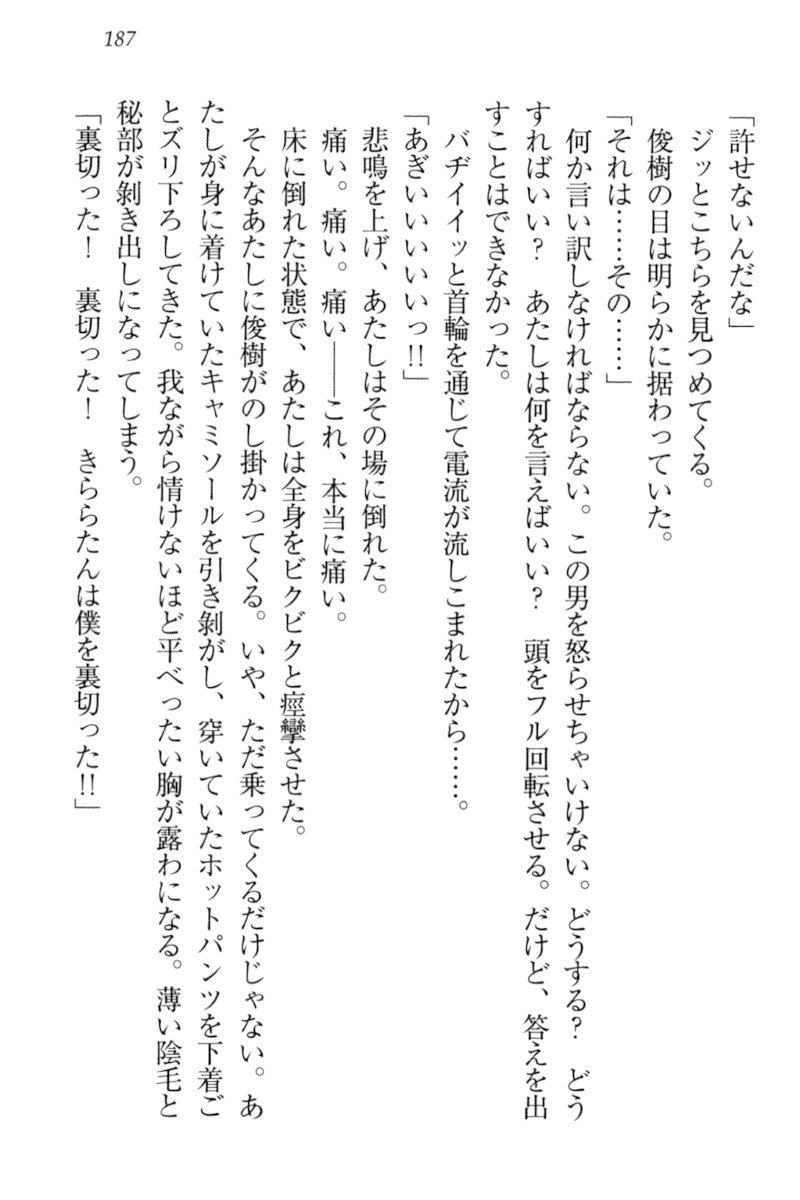 187
「許せないんだな」
ジッとこちらを見つめてくる。
俊樹の目は明らかに据わっていた。
「それは……その……」
何か言い訳しなければならない。この男を怒らせちゃいけない。どうする？　どう
すればいい？　あたしは何を言えばいい？　頭をフル回転させる。だけど、答えを出
すことはできなかった。
バヂイイッと首輪を通じて電流が流しこまれたから……。
「あぎいいいいいっ!!」
悲鳴を上げ、あたしはその場に倒れた。
痛い。痛い。痛い――これ、本当に痛い。
床に倒れた状態で、あたしは全身をビクビクと痙攣させた。
そんなあたしに俊樹がのし掛かってくる。いや、ただ乗ってくるだけじゃない。あ
たしが身に着けていたキャミソールを引き剥がし、穿いていたホットパンツを下着ご
とズリ下ろしてきた。我ながら情けないほど平べったい胸が露わになる。薄い陰毛と
秘部が剥き出しになってしまう。
「裏切った！　裏切った！　きららたんは僕を裏切った!!」